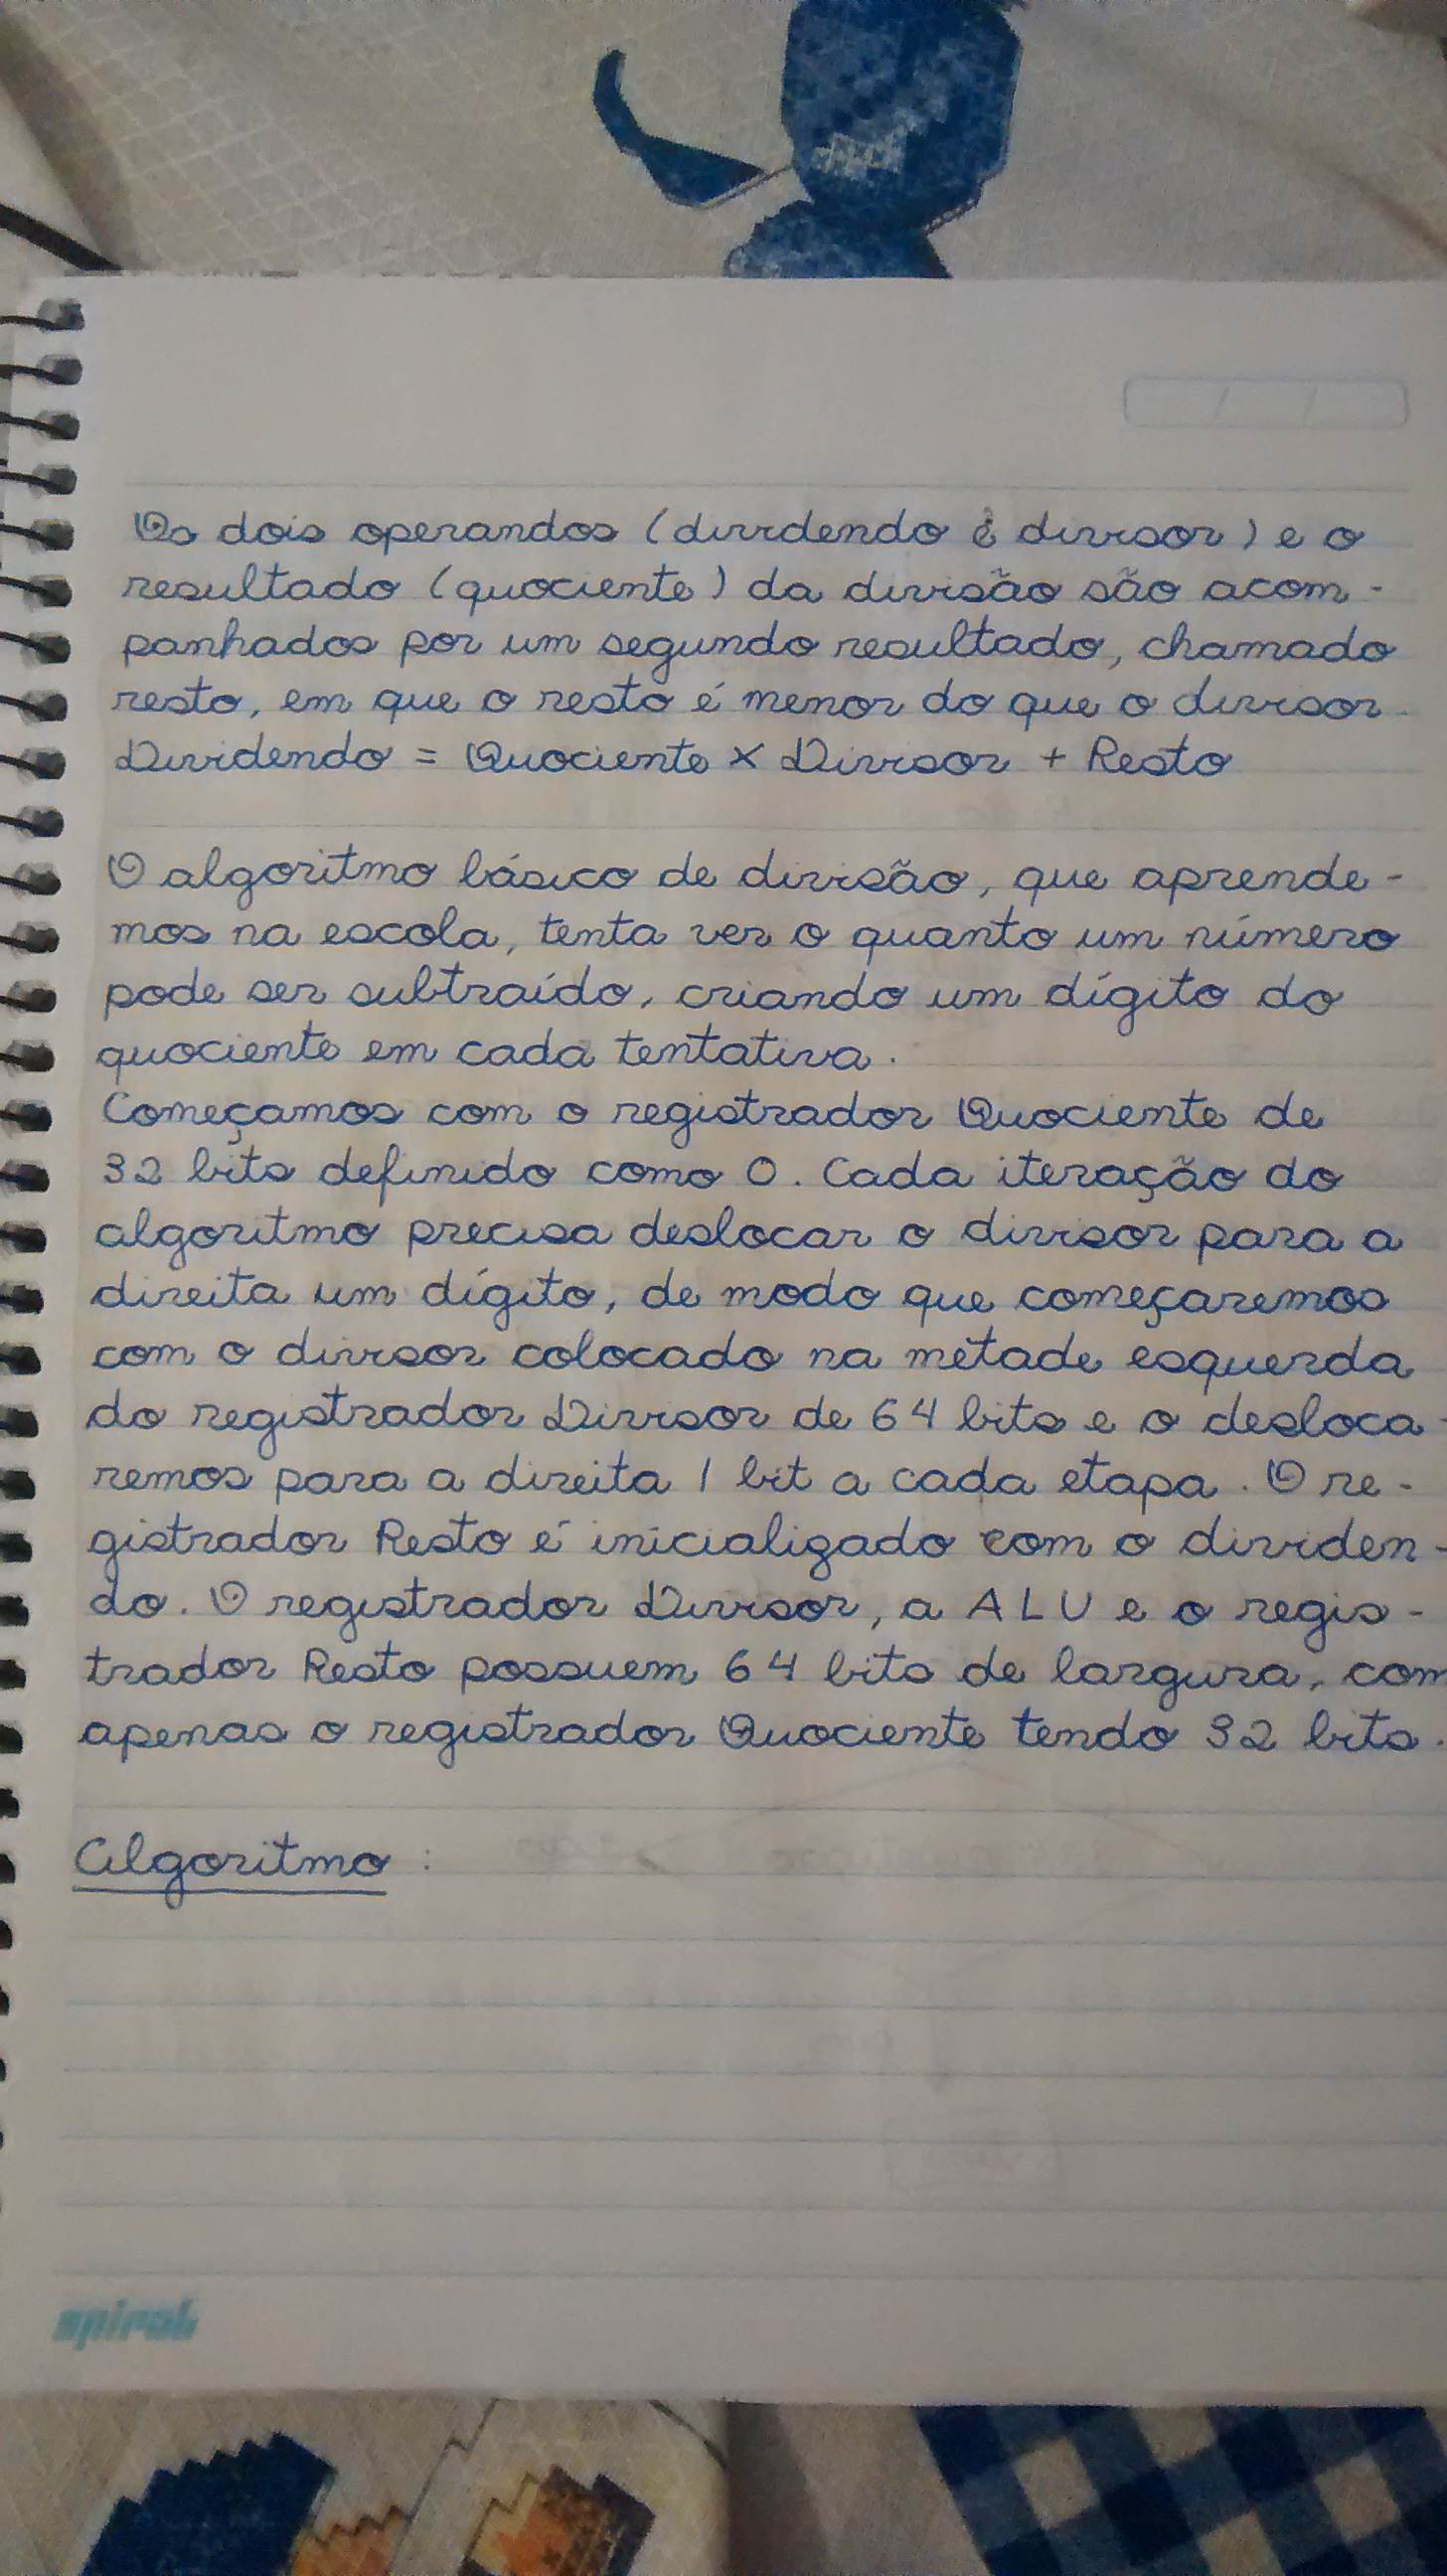 Os dois operandos (dividendo e divisor) e o
resultado (quociente) da divisão são acom-
panhados por um segundo resultado, chamado
resto, em que o resto é menor do que o divisor.
Dividendo = Quociente × Divisor + Resto
O algoritmo básico de divisão, que aprende-
mos na escola, tenta ver o quanto um número
pode ser subtraído, criando um dígito do
quociente em cada tentativa.
Começamos com o registrador Quociente de
32 bits definido como 0. Cada iteração do
algoritmo precisa deslocar o divisor para a
direita um dígito, de modo que começaremos
com o divisor colocado na metade esquerda
do registrador Divisor de 64 bits e o desloca-
remos para a direita 1 bit a cada etapa. O re-
gistrador Resto é inicializado com o dividen-
do. O registrador Divisor, a ALU e o regis-
trador Resto possuem 64 bits de largura, com
apenas o registrador Quociente tendo 32 bits.
Algoritmo:
spiral